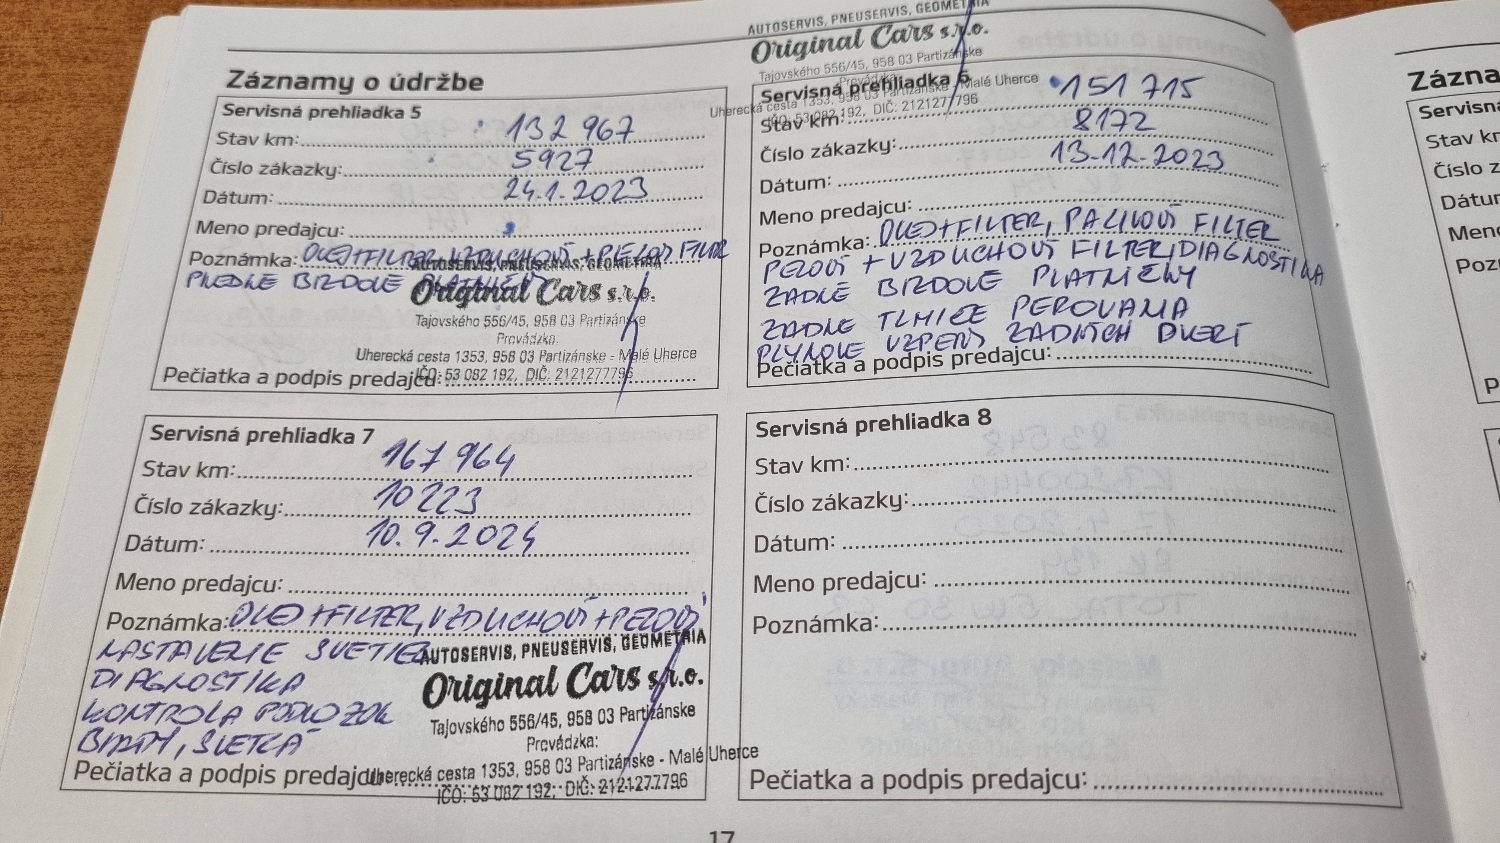 Záznamy o údržbe
Servisná prehliadka 5
Stav km: 132 967
Číslo zákazky: 5927
Dátum: 24.1.2023
Meno predajcu:
Poznámka: OLEJ+FILTER, VZDUCHOVÝ + PEĽOVÝ FILTER
PREDNÉ BRZDOVÉ
AUTOSERVIS, PNEUSERVIS, GEOMETRIA
Original Cars s.r.o.
Tajovského 556/45, 958 03 Partizánske
Prevádzka:
Uherecká cesta 1353, 958 03 Partizánske - Malé Uherce
IČO: 53 082 192, DIČ: 2121277796
Pečiatka a podpis predajcu:
AUTOSERVIS, PNEUSERVIS, GEOMETRIA
Original Cars s.r.o.
Tajovského 556/45, 958 03 Partizánske
Prevádzka:
Uherecká cesta 1353, 958 03 Partizánske - Malé Uherce
IČO: 53 082 192, DIČ: 2121277796
Servisná prehliadka 6
Stav km: 151 715
Číslo zákazky: 8172
Dátum: 13.12.2023
Meno predajcu:
Poznámka: OLEJ+FILTER, PALIVOVÝ FILTER
PEĽOVÝ + VZDUCHOVÝ FILTER, DIAGNOSTIKA
ZADNÉ BRZDOVÉ PLATNIČKY
ZADNÉ TLMIČE PEROVANIA
PLYNOVÉ VZPERY ZADNÝCH DVERÍ
Pečiatka a podpis predajcu:
Servisná prehliadka 7
Stav km: 167 964
Číslo zákazky: 10223
Dátum: 10.9.2024
Meno predajcu:
Poznámka: OLEJ+FILTER, VZDUCHOVÝ+PEĽOVÝ
NASTAVENIE SVETIEL
DIAGNOSTIKA
KONTROLA PODVOZOK
BRZDY, SVETLÁ
AUTOSERVIS, PNEUSERVIS, GEOMETRIA
Original Cars s.r.o.
Tajovského 556/45, 958 03 Partizánske
Prevádzka:
Uherecká cesta 1353, 958 03 Partizánske - Malé Uherce
IČO: 53 082 192, DIČ: 2121277796
Pečiatka a podpis predajcu:
Servisná prehliadka 8
Stav km:
Číslo zákazky:
Dátum:
Meno predajcu:
Poznámka:
Pečiatka a podpis predajcu:
17